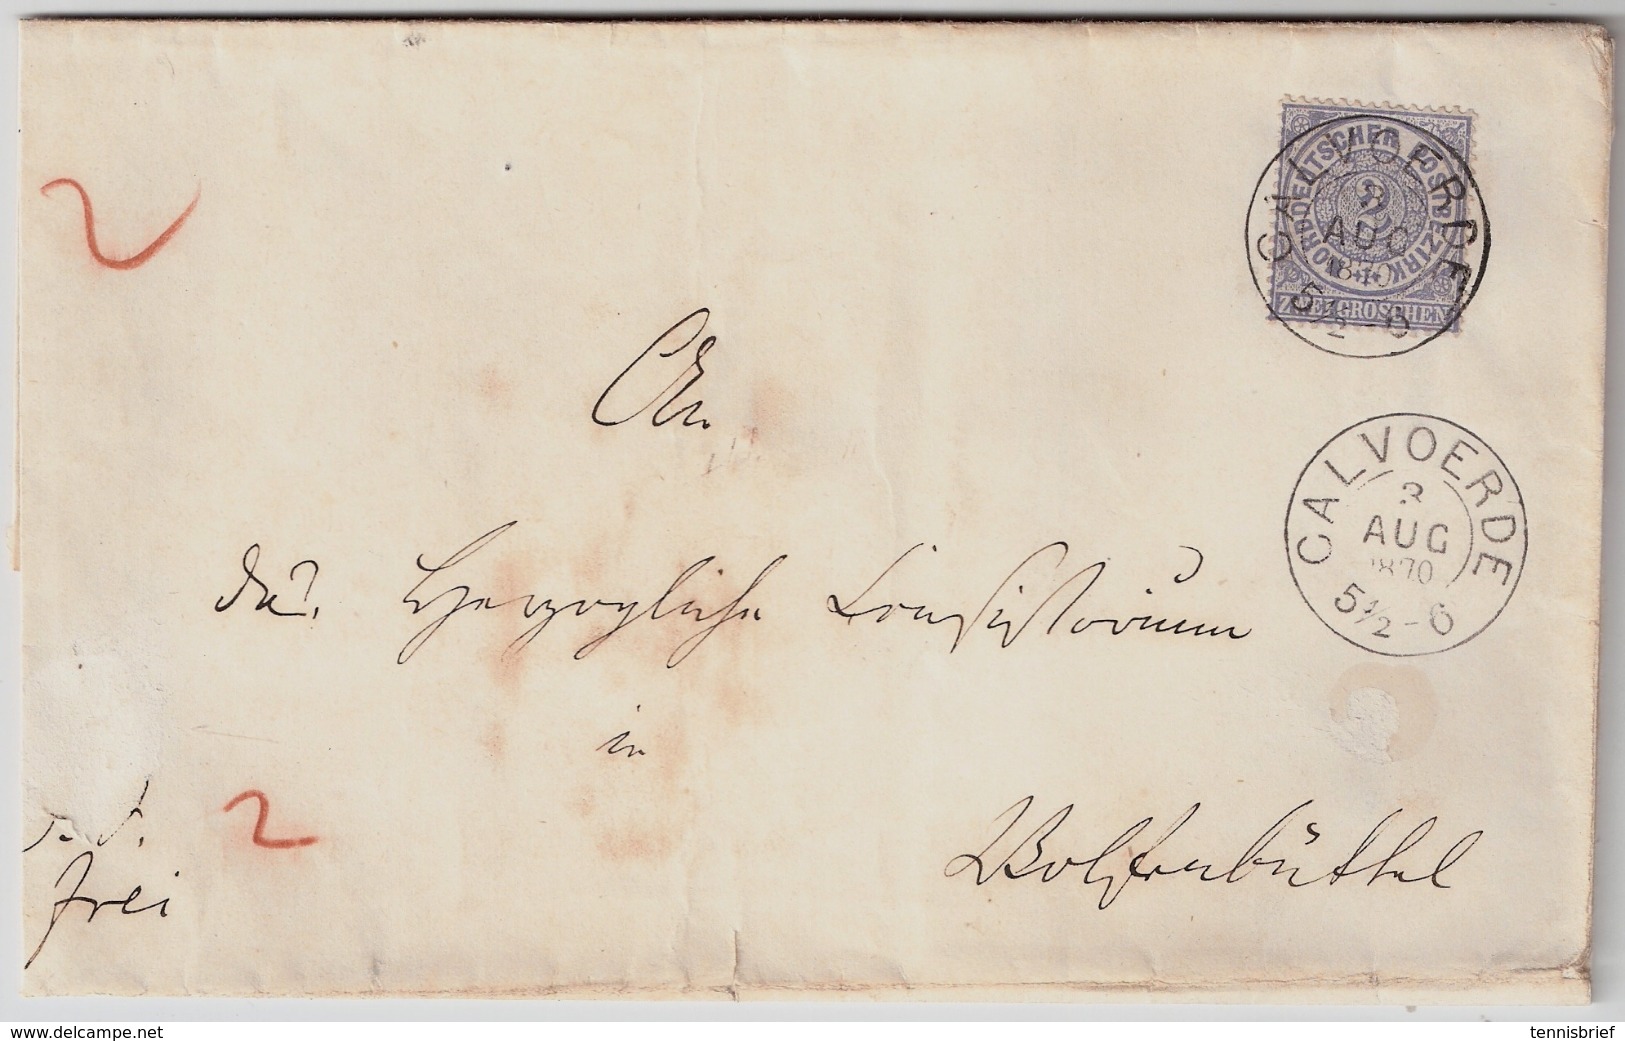 NORDDEUTSCHER POSTBEZIRK
2
ZWEI GROSCHEN
CALVOERDE
3
AUG
1870
5½-6
An
CALVOERDE
3
AUG
1870
5½-6
das Herzogliche Consistorium
in
Wolfenbüttel
2
2
frei
www.delcampe.net
tennisbrief